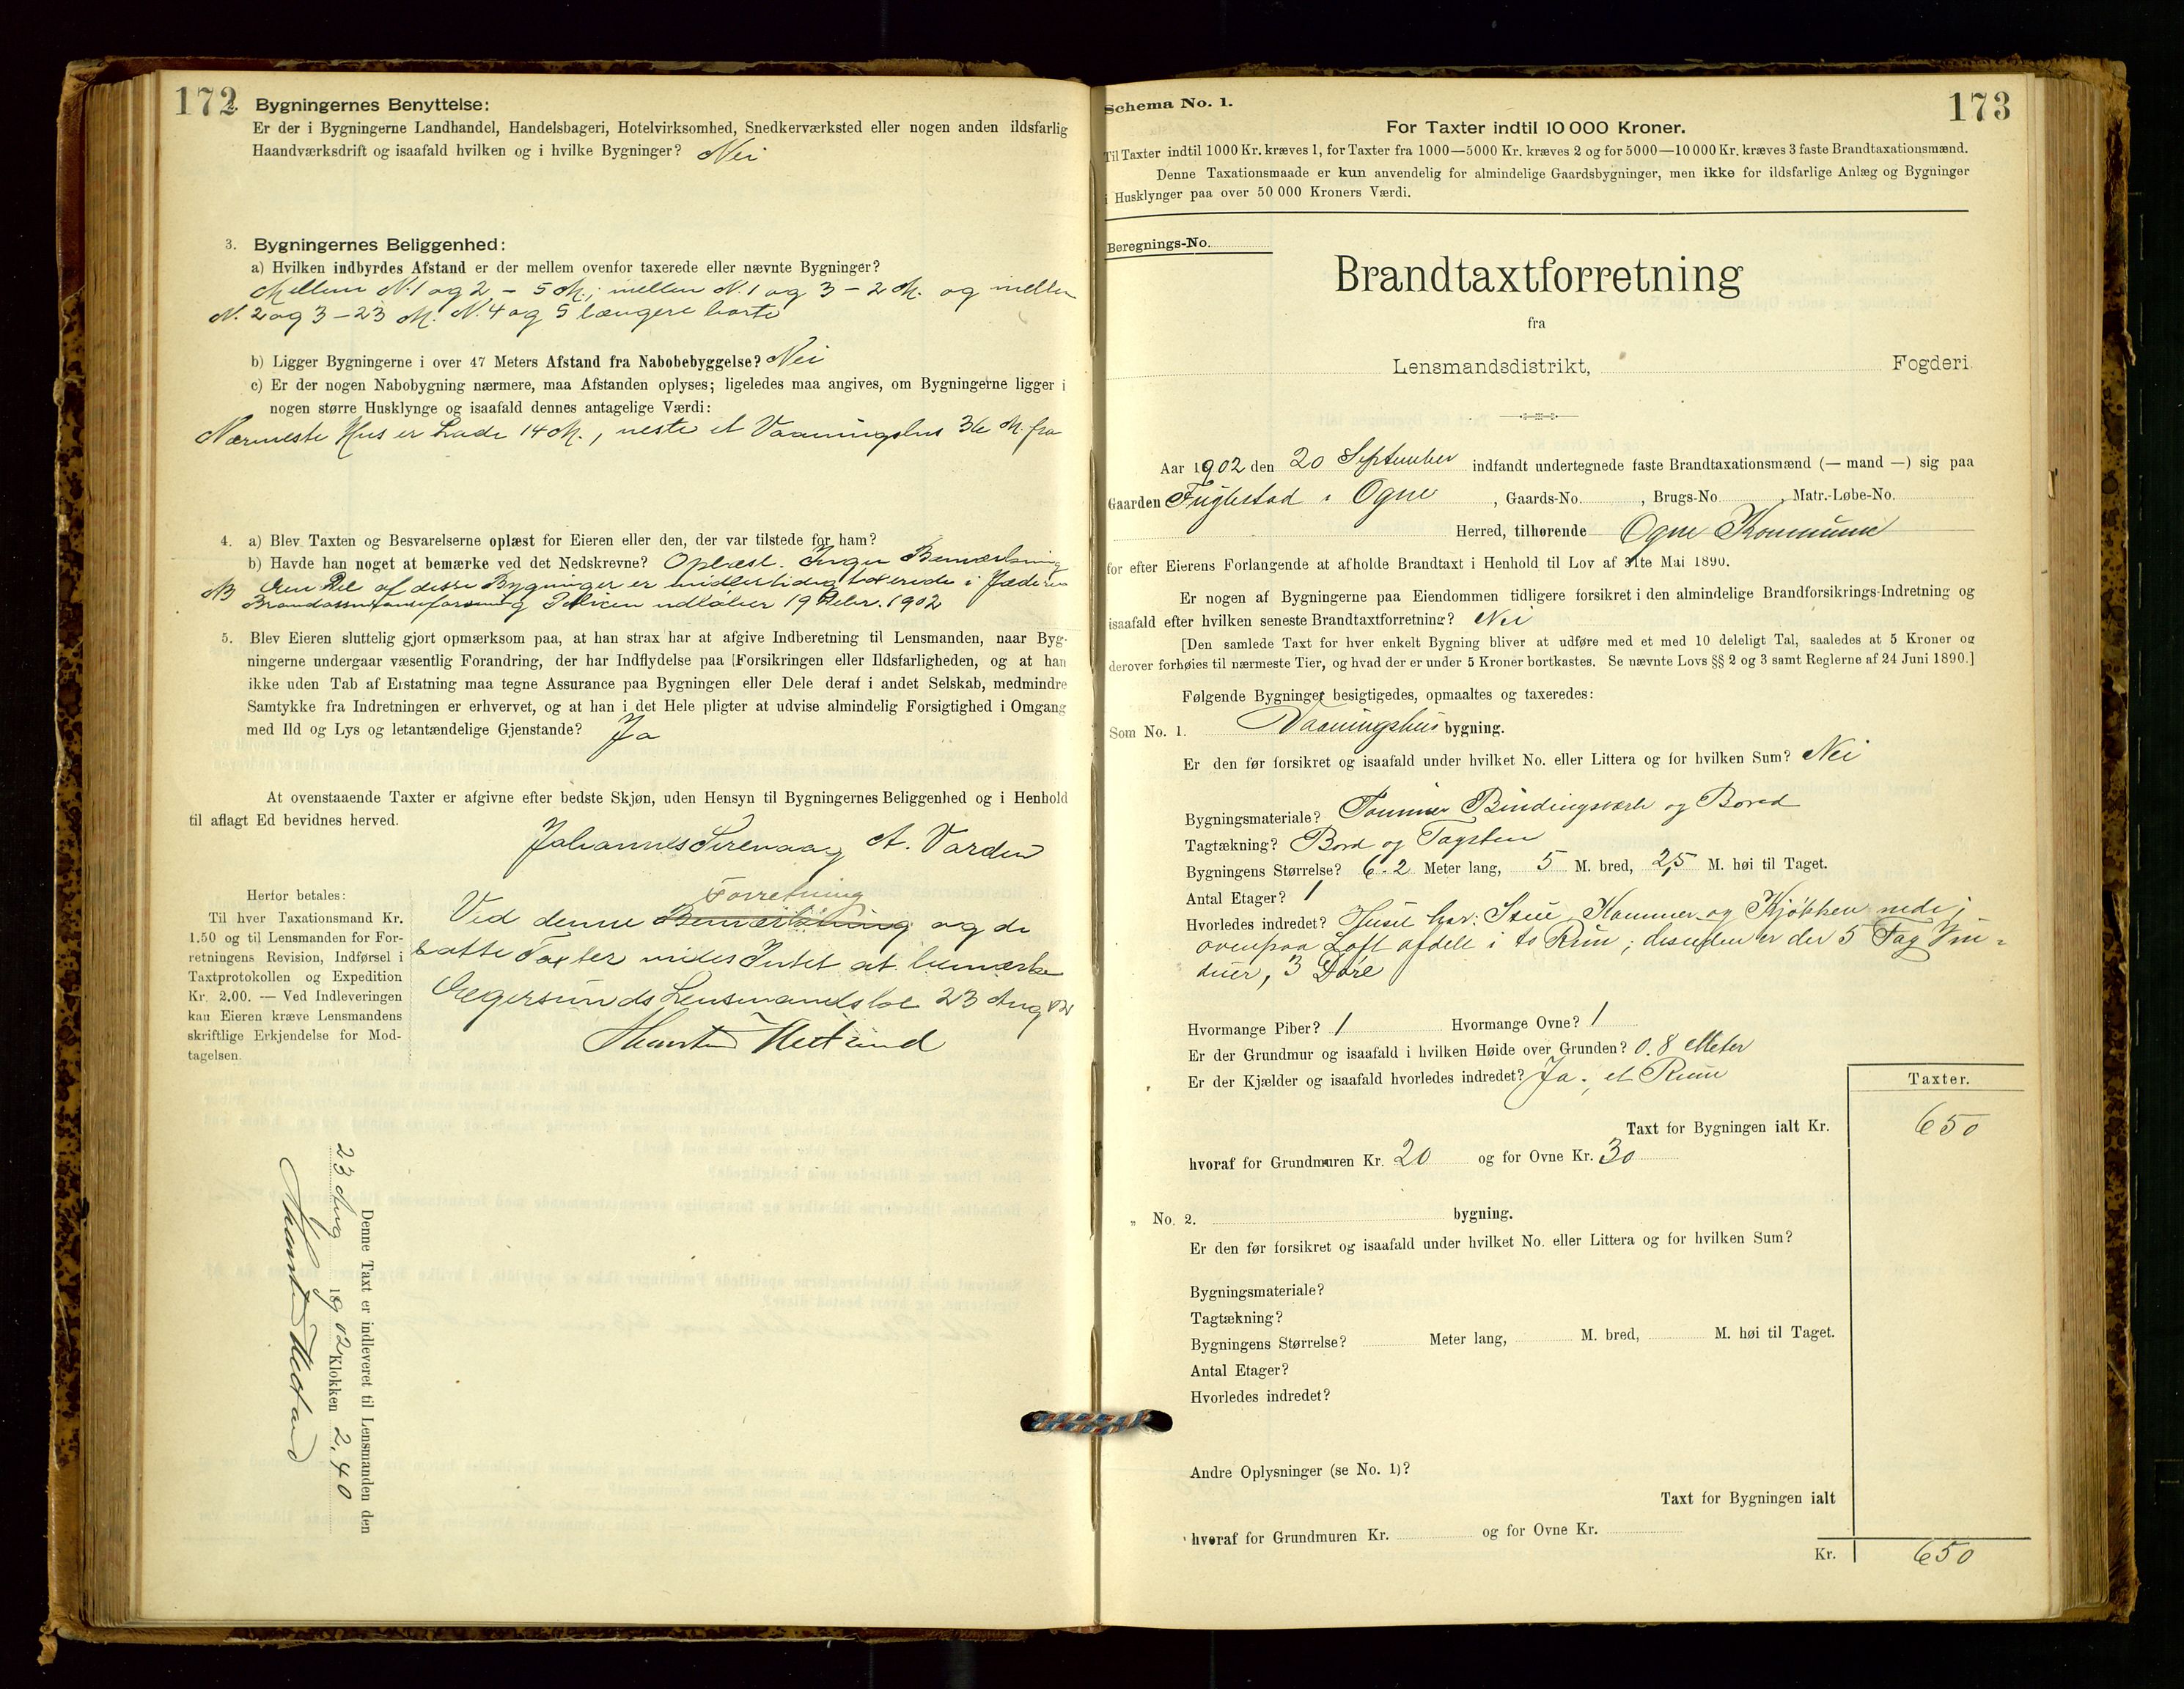 172
Bygningernes Benyttelse:
Er der i Bygningerne Landhandel, Handelsbageri, Hotelvirksomhed, Snedkerværksted eller nogen anden ildsfarlig
Haandværksdrift og isaafald hvilken og i hvilke Bygninger? Nei
3. Bygningernes Beliggenhed:
a) Hvilken indbyrdes Afstand er der mellem ovenfor taxerede eller nævnte Bygninger?
Mellem N. 1 og 2 – 5 M.; mellem N. 1 og 3 – 2 M. og mellem
N. 2 og 3 – 23 M. N. 4 og 5 længere borte
b) Ligger Bygningerne i over 47 Meters Afstand fra Nabobebyggelse? Nei
c) Er der nogen Nabobygning nærmere, maa Afstanden oplyses; ligeledes maa angives, om Bygningerne ligger i
nogen større Husklynge og isaafald dennes antagelige Værdi:
Nærmeste Hus er Lade 14 M., neste et Vaaningshus 36 M. fra
4. a) Blev Taxten og Besvarelserne oplæst for Eieren eller den, der var tilstede for ham?
b) Havde han noget at bemærke ved det Nedskrevne? Oplæst. Ingen Bemærkning
NB Een Del af disse Bygninger er midlertidig taxerede i Jæderens
Brandassuranceforening Policen udløber 19 Febr. 1902
5. Blev Eieren sluttelig gjort opmærksom paa, at han strax har at afgive Indberetning til Lensmanden, naar Byg-
ningerne undergaar væsentlig Forandring, der har Indflydelse paa [Forsikringen eller Ildsfarligheden, og at han
ikke uden Tab af Erstatning maa tegne Assurance paa Bygningen eller Dele deraf i andet Selskab, medmindre
Samtykke fra Indretningen er erhvervet, og at han i det Hele pligter at udvise almindelig Forsigtighed i Omgang
med Ild og Lys og letantændelige Gjenstande? Ja
At ovenstaaende Taxter er afgivne efter bedste Skjøn, uden Hensyn til Bygningernes Beliggenhed og i Henhold
til aflagt Ed bevidnes herved.
Johannes Sirevaag A. Varden
Herfor betales:
Til hver Taxationsmand Kr.
1.50 og til Lensmanden for For-
retningens Revision, Indførsel i
Taxtprotokollen og Expedition
Kr. 2.00. — Ved Indleveringen
kan Eieren kræve Lensmandens
skriftlige Erkjendelse for Mod-
tagelsen.
Forretning
Ved denne Bemærkning og de
satte Taxter vides Intet at bemærke
Egersunds Lensmandsbol 23 Aug 02
Denne Taxt er indleveret til Lensmanden den
23 Aug 1902 Klokken 2,40
Schema No. 1.
173
For Taxter indtil 10 000 Kroner.
Til Taxter indtil 1000 Kr. kræves 1, for Taxter fra 1000—5000 Kr. kræves 2 og for 5000—10 000 Kr. kræves 3 faste Brandtaxationsmænd.
Denne Taxationsmaade er kun anvendelig for almindelige Gaardsbygninger, men ikke for ildsfarlige Anlæg og Bygninger
i Husklynger paa over 50 000 Kroners Værdi.
Beregnings-No.
Brandtaxtforretning
fra
Lensmandsdistrikt, Fogderi.
Aar 1902 den 20 September indfandt undertegnede faste Brandtaxationsmænd (— mand —) sig paa
Gaarden Fuglestad i Ogne, Gaards-No. , Brugs-No. , Matr.-Løbe-No.
Herred, tilhørende Ogne Kommune
for efter Eierens Forlangende at afholde Brandtaxt i Henhold til Lov af 31te Mai 1890.
Er nogen af Bygningerne paa Eiendommen tidligere forsikret i den almindelige Brandforsikrings-Indretning og
isaafald efter hvilken seneste Brandtaxtforretning? Nei
[Den samlede Taxt for hver enkelt Bygning bliver at udføre med et med 10 deleligt Tal, saaledes at 5 Kroner og
derover forhøies til nærmeste Tier, og hvad der er under 5 Kroner bortkastes. Se nævnte Lovs §§ 2 og 3 samt Reglerne af 24 Juni 1890.]
Følgende Bygninger besigtigedes, opmaaltes og taxeredes:
Som No. 1. Vaaningshus bygning.
Er den før forsikret og isaafald under hvilket No. eller Littera og for hvilken Sum? Nei
Bygningsmateriale? Tømmer Bindingsværk og Bord
Tagtækning? Bord og Tagsten
Bygningens Størrelse? 6.2 Meter lang, 5 M. bred, 2,5 M. høi til Taget.
Antal Etager? 1
Hvorledes indredet? Huset har: Stue, Kammer og Kjøkken nede;
ovenpaa Loft afdelt i to Rum; desuden er der 5 Fag Vin-
duer, 3 Døre
Hvormange Piber? 1 Hvormange Ovne? 1
Er der Grundmur og isaafald i hvilken Høide over Grunden? 0.8 Meter
Er der Kjælder og isaafald hvorledes indredet? Ja; et Rum
Taxter.
Taxt for Bygningen ialt Kr. 650
hvoraf for Grundmuren Kr. 20 og for Ovne Kr. 30
„ No. 2. bygning.
Er den før forsikret og isaafald under hvilket No. eller Littera og for hvilken Sum?
Bygningsmateriale?
Tagtækning?
Bygningens Størrelse? Meter lang, M. bred, M. høi til Taget.
Antal Etager?
Hvorledes indredet?
Andre Oplysninger (se No. 1)?
Taxt for Bygningen ialt
hvoraf for Grundmuren Kr. og for Ovne Kr.
Kr. 650